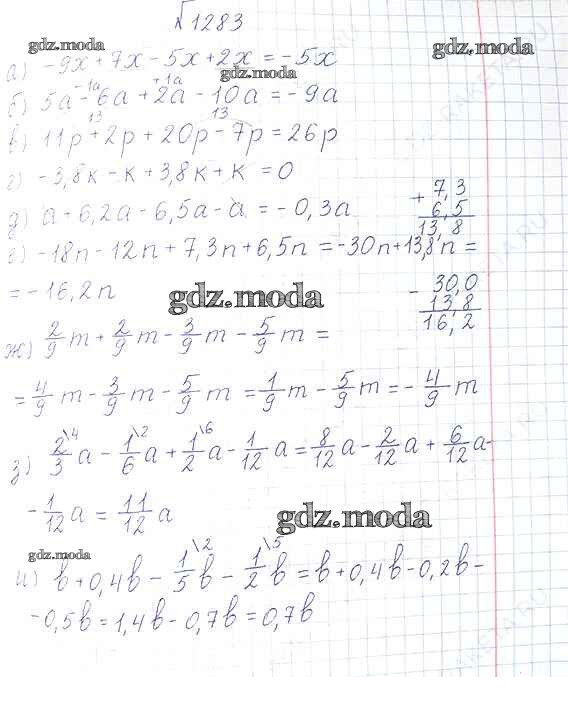 √1283
gdz.moda
а) -9x + 7x - 5x + 2x = -5x
gdz.moda
-1a +1a
б) 5a - 6a + 2a - 10a = -9a
13 13
в) 11p + 2p + 20p - 7p = 26p
г) -3,8к - к + 3,8к + к = 0
д) a + 6,2a - 6,5a - a = -0,3a
+ 7,3
6,5
13,8
е) -18n - 12n + 7,3n + 6,5n = -30n + 13,8n =
= -16,2n
gdz.moda
- 30,0
13,8
16,2
ж) 2/9 m + 2/9 m - 3/9 m - 5/9 m =
= 4/9 m - 3/9 m - 5/9 m = 1/9 m - 5/9 m = - 4/9 m
з) 2\4/3 a - 1\2/6 a + 1\6/2 a - 1/12 a = 8/12 a - 2/12 a + 6/12 a -
- 1/12 a = 11/12 a
gdz.moda
gdz.moda
и) b + 0,4b - 1\2/5 b - 1\5/2 b = b + 0,4b - 0,2b -
- 0,5b = 1,4b - 0,7b = 0,7b